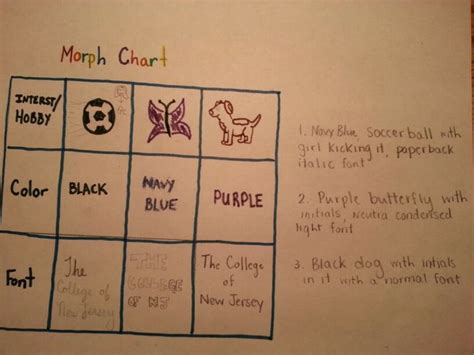 Morph Chart
INTERST/
HOBBY
Color
BLACK
NAVY
BLUE
PURPLE
Font
The
College of
New Jersey
THE
COLLEGE
OF NJ
The College
of
New Jersey
1. Navy Blue soccerball with
girl kicking it, paperback
italic font
2. Purple butterfly with
initials, Neutra condensed
light font
3. Black dog with intials
in it with a normal font